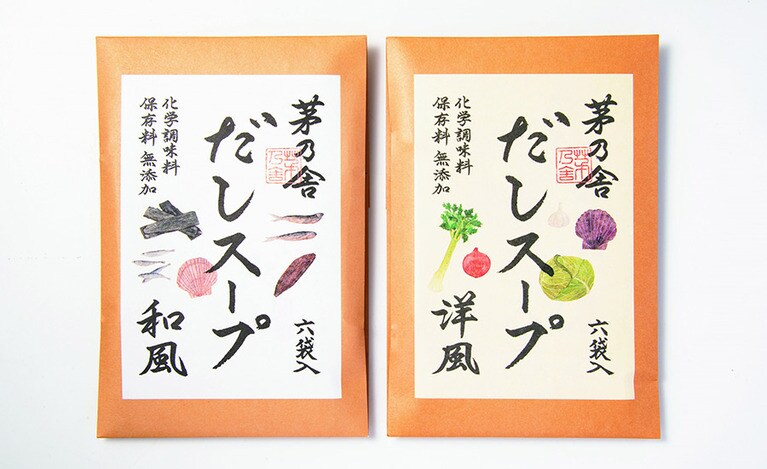 茅乃舎
だしスープ
化学調味料
保存料 無添加
和風
六袋入
茅乃舎
だしスープ
化学調味料
保存料 無添加
洋風
六袋入